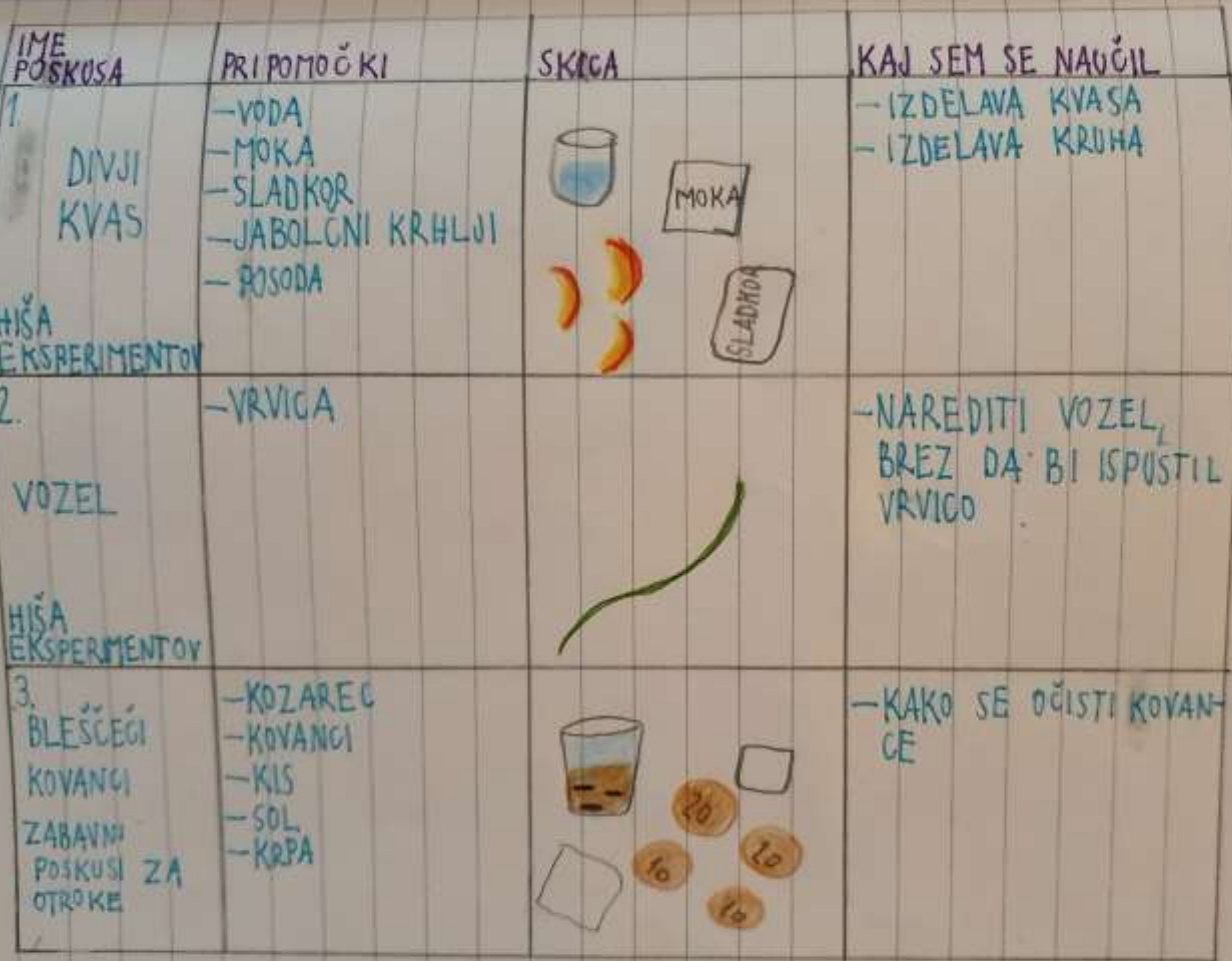 IME
POSKUSA
PRIPOMOČKI
SKICA
KAJ SEM SE NAUČIL
1.
DIVJI
KVAS
HIŠA
EKSPERIMENTOV
-VODA
-MOKA
-SLADKOR
-JABOLČNI KRHLJI
-POSODA
MOKA
SLADKOR
-IZDELAVA KVASA
-IZDELAVA KRUHA
2.
VOZEL
HIŠA
EKSPERIMENTOV
-VRVICA
-NAREDITI VOZEL,
BREZ DA BI ISPUSTIL
VRVICO
3.
BLEŠČEČI
KOVANCI
ZABAVNI
POSKUSI ZA
OTROKE
-KOZAREC
-KOVANCI
-KIS
-SOL
-KRPA
20
10
20
10
-KAKO SE OČISTI KOVAN-
CE